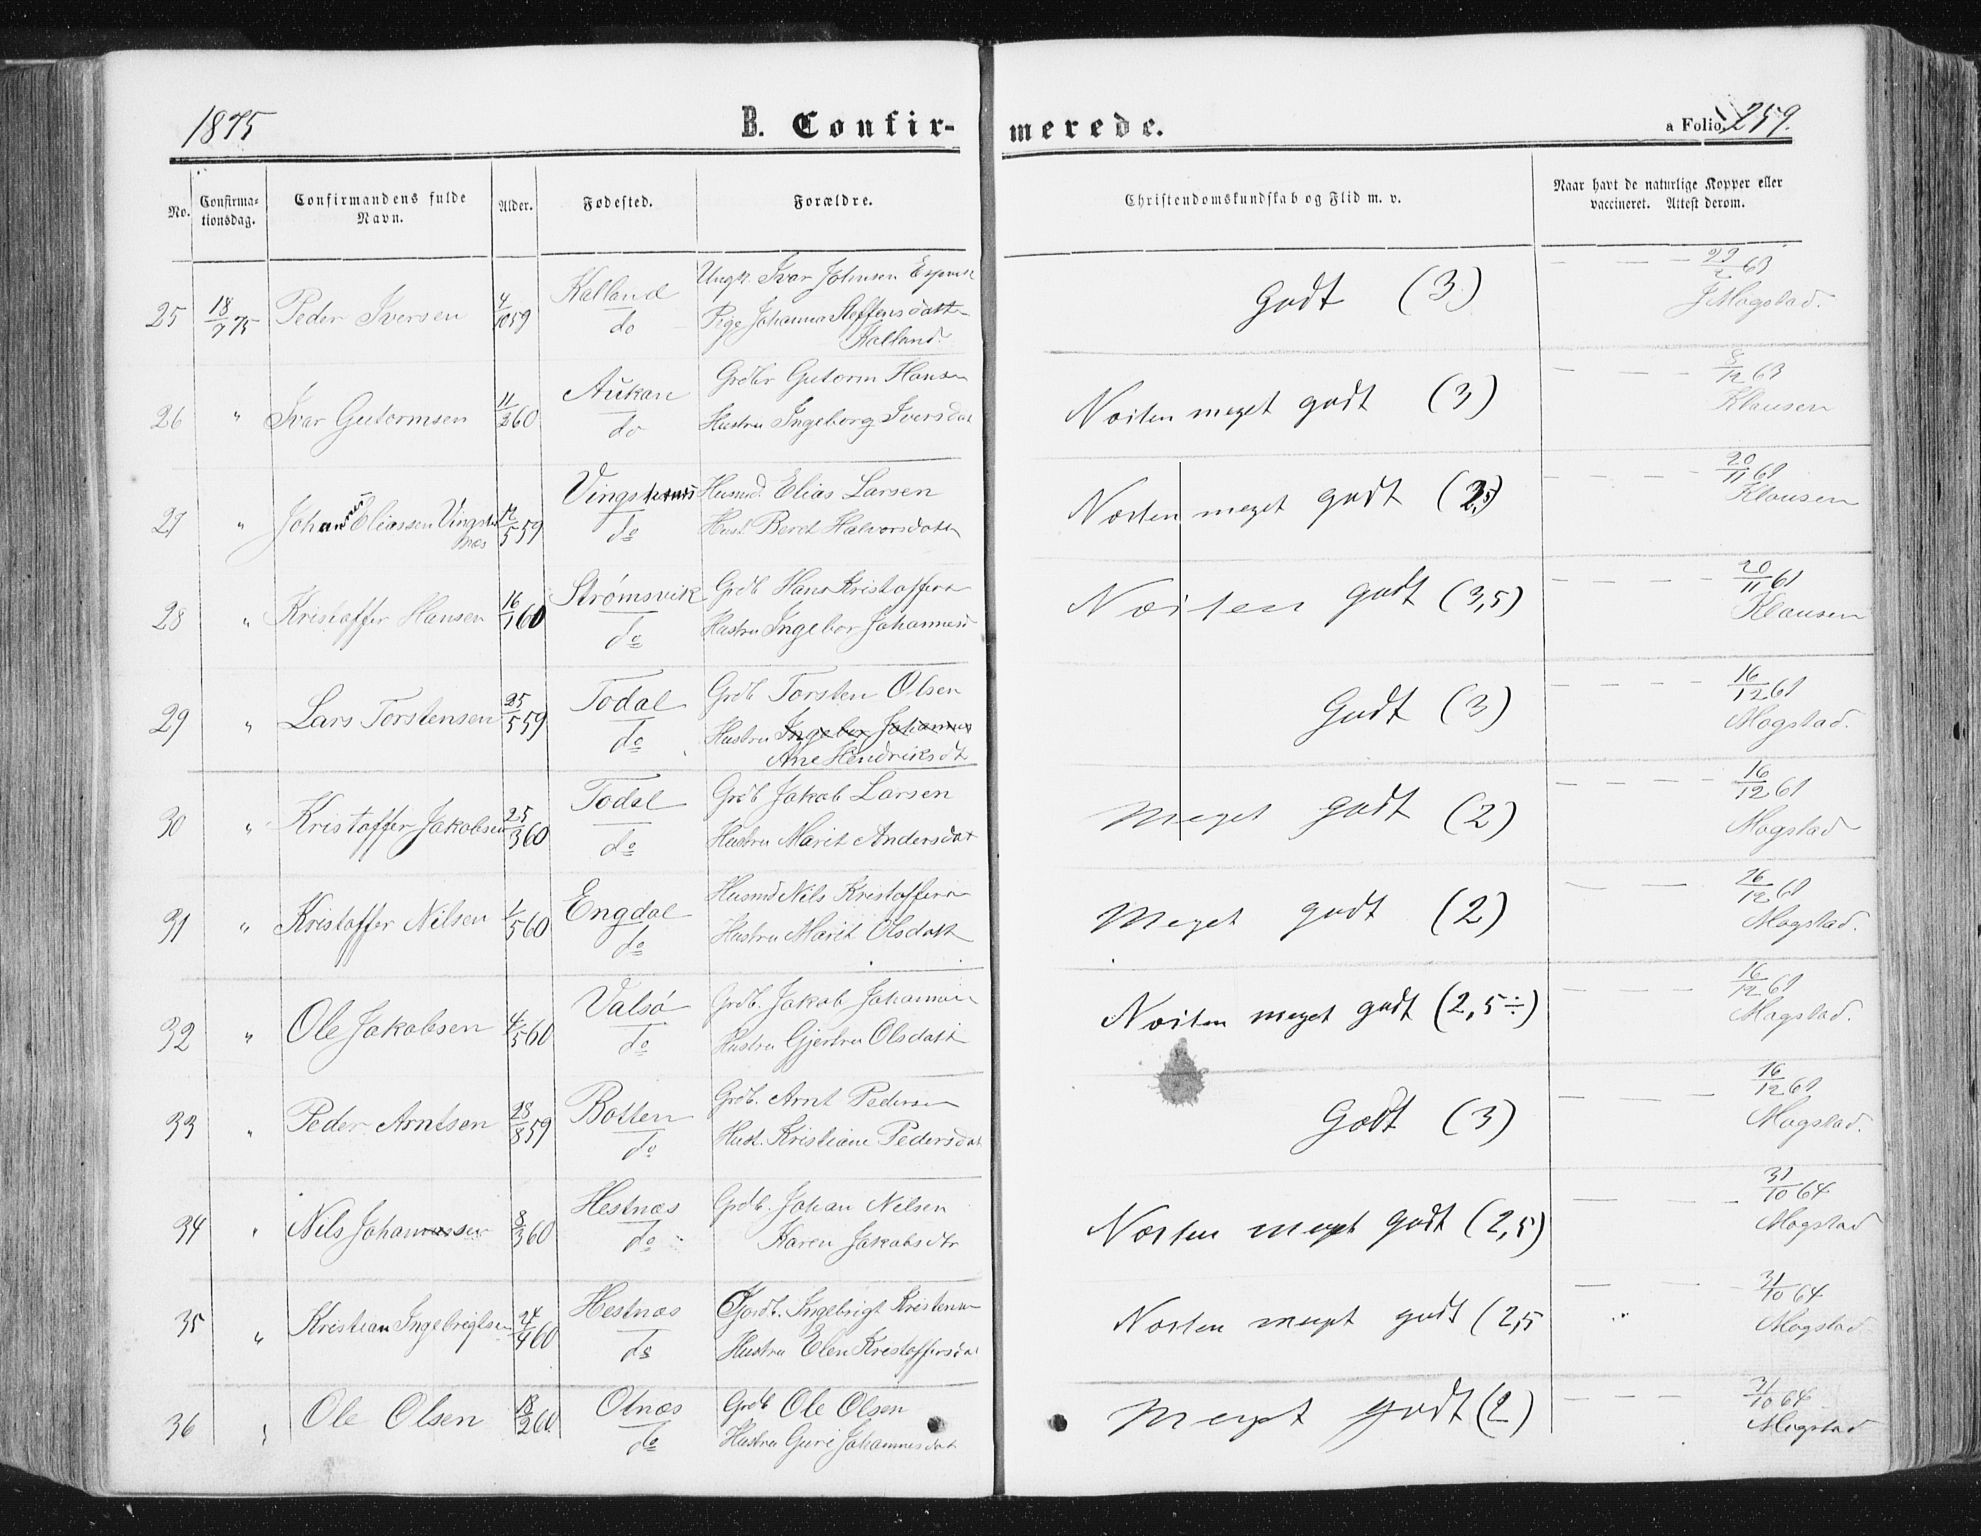 1875
B. Confir-
merede.
a Folio 259.
No.
Confirma-
tionsdag.
Confirmandens fulde
Navn.
Alder.
Fødested.
Forældre.
Christendomskundskab og Flid m. v.
Naar havt de naturlige Kopper eller
vaccineret. Attest derom.
25 18/7 75 Peder Iversen 4/10 59 Kalland do Ungk. Ivar Johnsen
Pige Johanna Steffensdatt
Halland.
Godt (3) 63
Mogstad.
26 " Ivar Gutormsen 11/2 60 Aukan do Grdbr Gutorm Hansen
Hustru Ingeborg Iversdat
Næsten meget godt (3) 8/12 63
Klausen
27 " Johannes Eliassen Vingst
næs
5 59 Vingsternæs do Husmd. Elias Larsen
Hust Beret Halvorsdatt
Næsten meget godt (2,5) 20/11 61
Klausen
28 " Kristoffer Hansen 16/1 60 Strømsvik do Grdb Hans Kristoffers
Hustru Ingebor Johannesd
Næsten godt (3,5) 20/11 61
Klausen
29 " Lars Torstensen 25/5 59 Todal do Grdb Torsten Olsen
Hustru Ingebor Johannes
Ane Hendriksdt
Godt (3) 16/12 61
Mogstad.
30 " Kristoffer Jakobsen 25/3 60 Todal do Grdb Jakob Larsen
Hustru Marit Andersdat
Meget godt (2) 16/12 61
Mogstad
31 " Kristoffer Nilsen 1/5 60 Engdal do Husmd Nils Kristoffers
Hustru Marit Olsdatt
Meget godt (2) 16/12 61
Mogstad.
32 " Ole Jakobsen 4/5 60 Valsø do Grdb. Jakob Johannesn
Hustru Gjertru Olsdatt
Næsten meget godt (2,5 ÷) 16/12 61
Mogstad.
33 " Peder Arntsen 28/8 59 Botten do Grdb. Arnt Pedersen
Hust. Kristiane Pedersdat
Godt (3) 16/12 61
Mogstad.
34 " Nils Johannesen 8/3 60 Hestnæs do Grdb. Johan Nilsen
Karen Jakobsdtr
Næsten meget godt (2,5) 31/10 64
Mogstad
35 " Kristian Ingebrigtsen 24/4 60 Hestnæs do Gordb. Ingebrigt Kristensen
Hustru Elen Kristoffersdat
Næsten meget godt (2,5 31/10 64
Mogstad
36 " Ole Olsen 18/2 60 Olnæs do Grdb Ole Olsen
Hustru Guri Johannesdat
Meget godt (2) 31/10 64
Mogstad